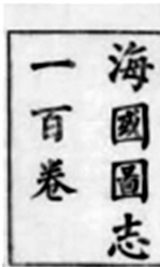 海國圖志
一百卷